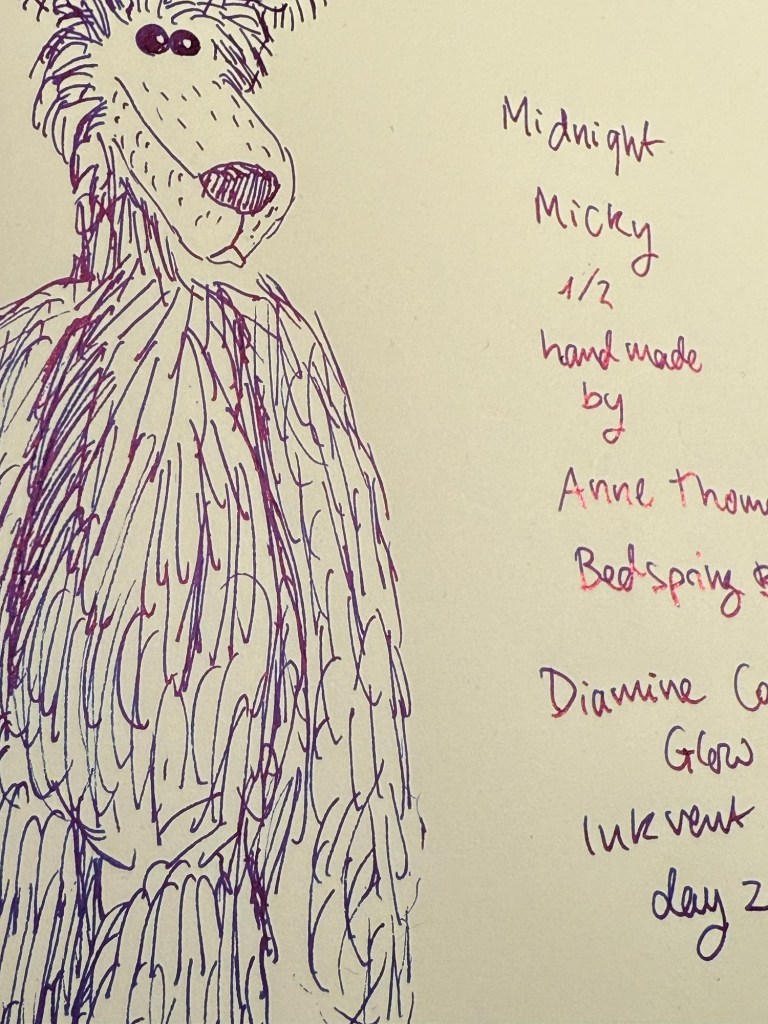 Midnight
Micky
1/2
handmade
by
Anne Thom
Bedspring
Diamine Co
Glow
Inkvent
day 2